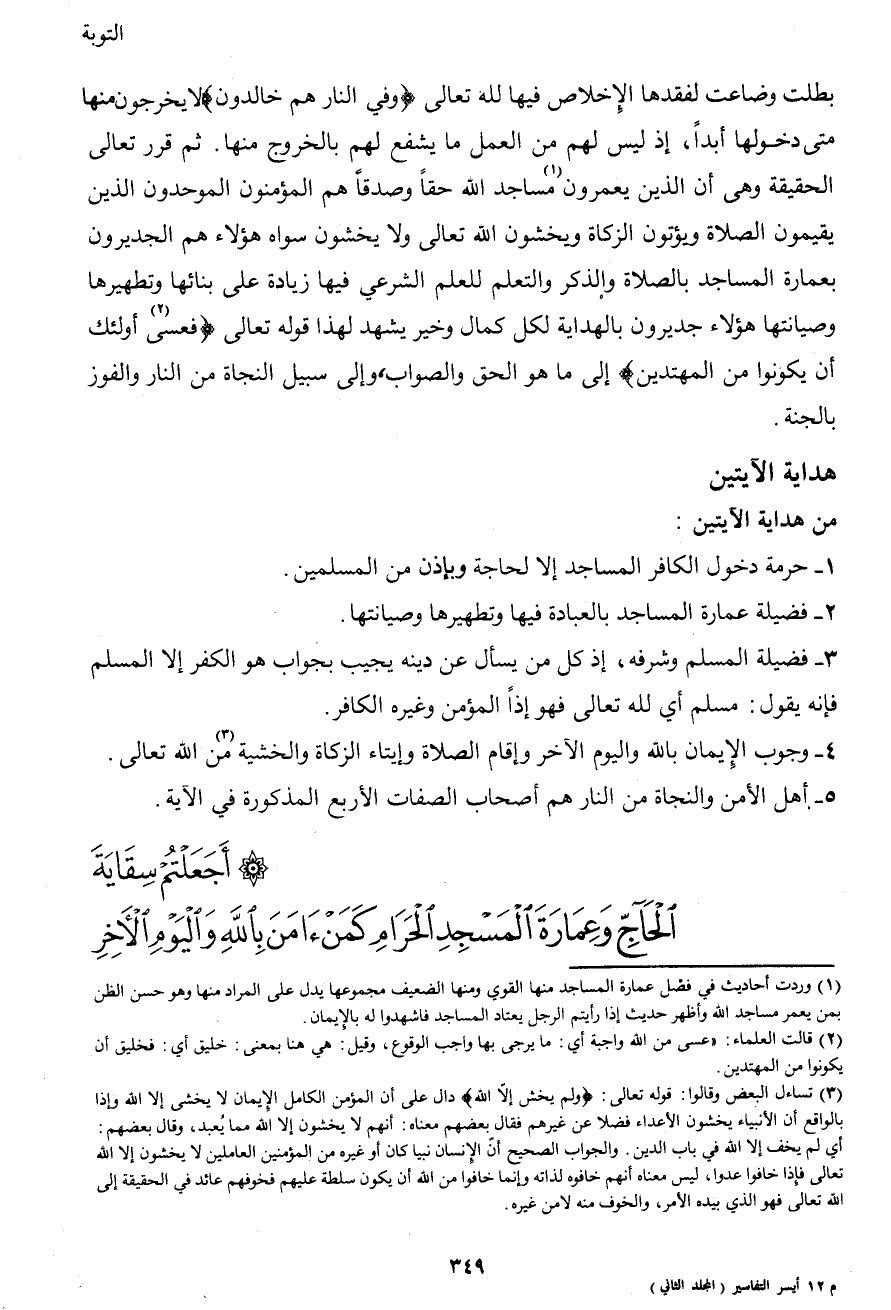 التوبة
بطلت وضاعت لفقدها الإخلاص فيها لله تعالى ﴿وفي النار هم خالدون﴾لايخرجون منها
متى دخـولها أبداً، إذ ليس لهم من العمل ما يشفع لهم بالخروج منها. ثم قرر تعالى
الحقيقة وهى أن الذين يعمرون(١) مساجد الله حقاً وصدقاً هم المؤمنون الموحدون الذين
يقيمون الصلاة ويؤتون الزكاة ويخشون الله تعالى ولا يخشون سواه هؤلاء هم الجديرون
بعمارة المساجد بالصلاة والذكر والتعلم للعلم الشرعي فيها زيادة على بنائها وتطهيرها
وصيانتها هؤلاء جديرون بالهداية لكل كمال وخير يشهد لهذا قوله تعالى ﴿فعسى(٢) أولئك
أن يكونوا من المهتدين﴾ إلى ما هو الحق والصواب، وإلى سبيل النجاة من النار والفوز
بالجنة .
هداية الآيتين
من هداية الآيتين :
١ـ حرمة دخول الكافر المساجد إلا لحاجة وبإذن من المسلمين .
٢ـ فضيلة عمارة المساجد بالعبادة فيها وتطهيرها وصيانتها.
٣ـ فضيلة المسلم وشرفه، إذ كل من يسأل عن دينه يجيب بجواب هو الكفر إلا المسلم
فإنه يقول: مسلم أي لله تعالى فهو إذاً المؤمن وغيره الكافر.
٤ـ وجوب الإيمان بالله واليوم الآخر وإقام الصلاة وإيتاء الزكاة والخشية(٣) من الله تعالى .
٥ـ أهل الأمن والنجاة من النار هم أصحاب الصفات الأربع المذكورة في الآية .
۞ أَجَعَلْتُمْ سِقَايَةَ
ٱلْحَآجِّ وَعِمَارَةَ ٱلْمَسْجِدِ ٱلْحَرَامِ كَمَنْ ءَامَنَ بِٱللَّهِ وَٱلْيَوْمِ ٱلْأَخِرِ
(١) وردت أحاديث في فضل عمارة المساجد منها القوي ومنها الضعيف مجموعها يدل على المراد منها وهو حسن الظن
بمن يعمر مساجد الله وأظهر حديث إذا رأيتم الرجل يعتاد المساجد فاشهدوا له بالإيمان.
(٢) قالت العلماء: «عسى من الله واجبة أي: ما يرجى بها واجب الوقوع، وقيل: هي هنا بمعنى: خليق أي: فخليق أن
يكونوا من المهتدين.
(٣) تساءل البعض وقالوا: قوله تعالى: ﴿ولم يخش إلّا الله﴾ دال على أن المؤمن الكامل الإيمان لا يخشى إلا الله وإذا
بالواقع أن الأنبياء يخشون الأعداء فضلا عن غيرهم فقال بعضهم معناه: أنهم لا يخشون إلا الله مما يُعبد، وقال بعضهم:
أي لم يخف إلا الله في باب الدين. والجواب الصحيح أنّ الإنسان نبيا كان أو غيره من المؤمنين العاملين لا يخشون إلا الله
تعالى فإذا خافوا عدوا، ليس معناه أنهم خافوه لذاته وإنما خافوا من الله أن يكون سلطة عليهم فخوفهم عائد في الحقيقة إلى
الله تعالى فهو الذي بيده الأمر، والخوف منه لامن غيره.
٣٤٩
م ١٢ أيسر التفاسير ( المجلد الثاني )